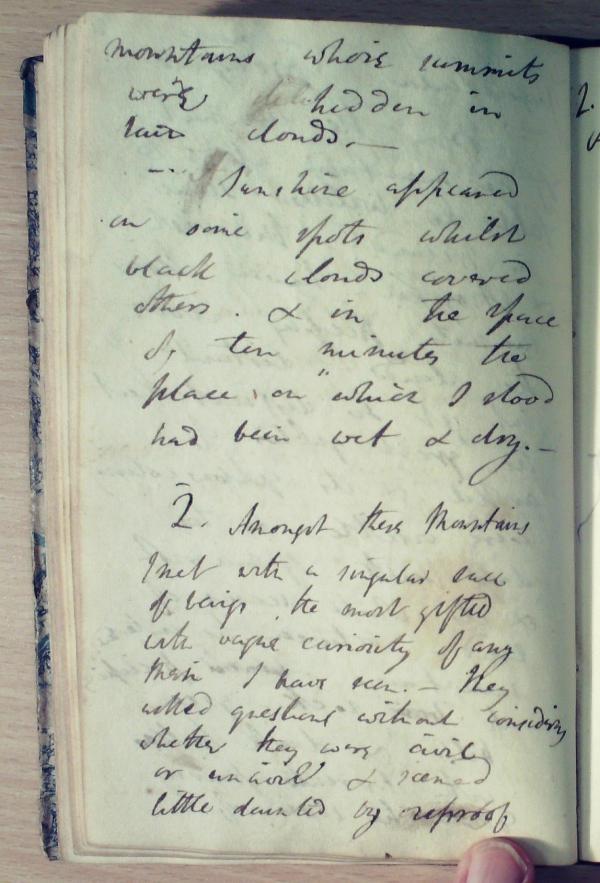 mountains whose summits
were hidden in
clouds. —
— Sunshine appeared
on some spots whilst
black clouds covered
others. & in the space
of ten minutes the
place on which I stood
had been wet & dry. —
2. Amongst these Mountains
I met with a singular race
of beings, the most gifted
with vague curiosity of any
them I have seen. — They
asked questions without considering
whether they were civil
or uncivil & seemed
little daunted by reproof
2.